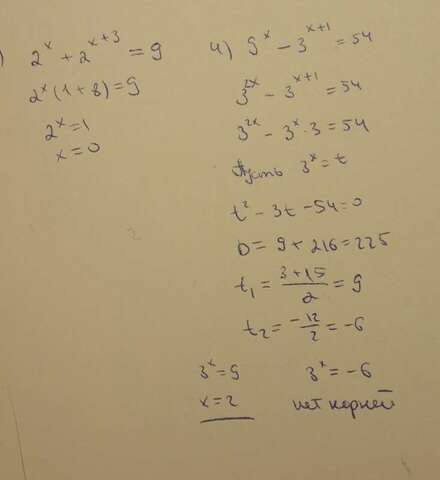 )
2^x + 2^{x+3} = 9
2^x (1 + 8) = 9
2^x = 1
x = 0
4) 9^x - 3^{x+1} = 54
3^{2x} - 3^{x+1} = 54
3^{2x} - 3^x · 3 = 54
Пусть 3^x = t
t^2 - 3t - 54 = 0
D = 9 + 216 = 225
t_1 = \frac{3+15}{2} = 9
t_2 = \frac{-12}{2} = -6
3^x = 9 3^x = -6
x = 2 нет корней